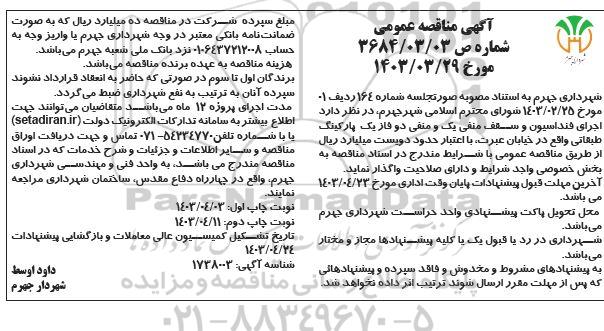 آگهی مناقصه عمومی
شماره ص ۳۶۸۴/۰۳/۰۳
مورخ ۱۴۰۳/۰۳/۲۹
شهرداری جهرم به استناد مصوبه صورتجلسه شماره ۱۶۴ ردیف ۰۱
مورخ ۱۴۰۳/۰۲/۲۵ شورای محترم اسلامی شهرجهرم، در نظر دارد
اجرای فنداسیون و سقف منفی یک و منفی دو فاز یک پارکینگ
طبقاتی واقع در خیابان عبرت، با اعتبار حدود دویست میلیارد ریال
از طریق مناقصه عمومی با شرایط مندرج در اسناد مناقصه به
بخش خصوصی واجد شرایط و دارای صلاحیت واگذار نماید.
آخرین مهلت قبول پیشنهادات پایان وقت اداری مورخ ۱۴۰۳/۰۴/۲۳
می باشد.
محل تحویل پاکت پیشنهادی واحد حراست شهرداری جهرم
می‌باشد.
شهرداری در رد یا قبول یک یا کلیه پیشنهادها مجاز و مختار
می‌باشد.
به پیشنهادهای مشروط و مخدوش و فاقد سپرده و پیشنهادهائی
که پس از مهلت مقرر ارسال شوند ترتیب اثر داده نخواهد شد.
مبلغ سپرده شرکت در مناقصه ده میلیارد ریال که به صورت
ضمانت‌نامه بانکی معتبر در وجه شهرداری جهرم یا واریز وجه به
حساب ۰۱۰۶۴۳۷۲۱۲۰۰۸ نزد بانک ملی شعبه جهرم می‌باشد.
هزینه مناقصه به عهده برنده مناقصه می‌باشد.
برندگان اول تا سوم در صورتی که حاضر به انعقاد قرارداد نشوند
سپرده آنان به ترتیب به نفع شهرداری ضبط می‌گردد.
مدت اجرای پروژه ۱۲ ماه می‌باشد متقاضیان می‌توانند جهت
اطلاع بیشتر به سامانه تدارکات الکترونیک دولت (setadiran.ir)
یا با شماره تلفن ۵۴۲۳۴۷۷۰-۰۷۱ تماس و جهت دریافت اوراق
مناقصه و سایر اطلاعات و جزئیات و شرح خدمات که در اسناد
مناقصه مندرج می باشد، به واحد فنی و مهندسی شهرداری
جهرم، واقع در چهارراه دفاع مقدس، ساختمان شهرداری مراجعه
نمایند.
نوبت چاپ اول: ۱۴۰۳/۰۴/۰۳
نوبت چاپ دوم: ۱۴۰۳/۰۴/۱۱
تاریخ تشکیل کمیسیون عالی معاملات و بازگشایی پیشنهادات
۱۴۰۳/۰۴/۲۴
شناسه آگهی: ۱۷۳۸۰۰۳
داود اوسط
شهردار جهرم
۰۲۱-۸۸۳۴۹۶۷۰-۵